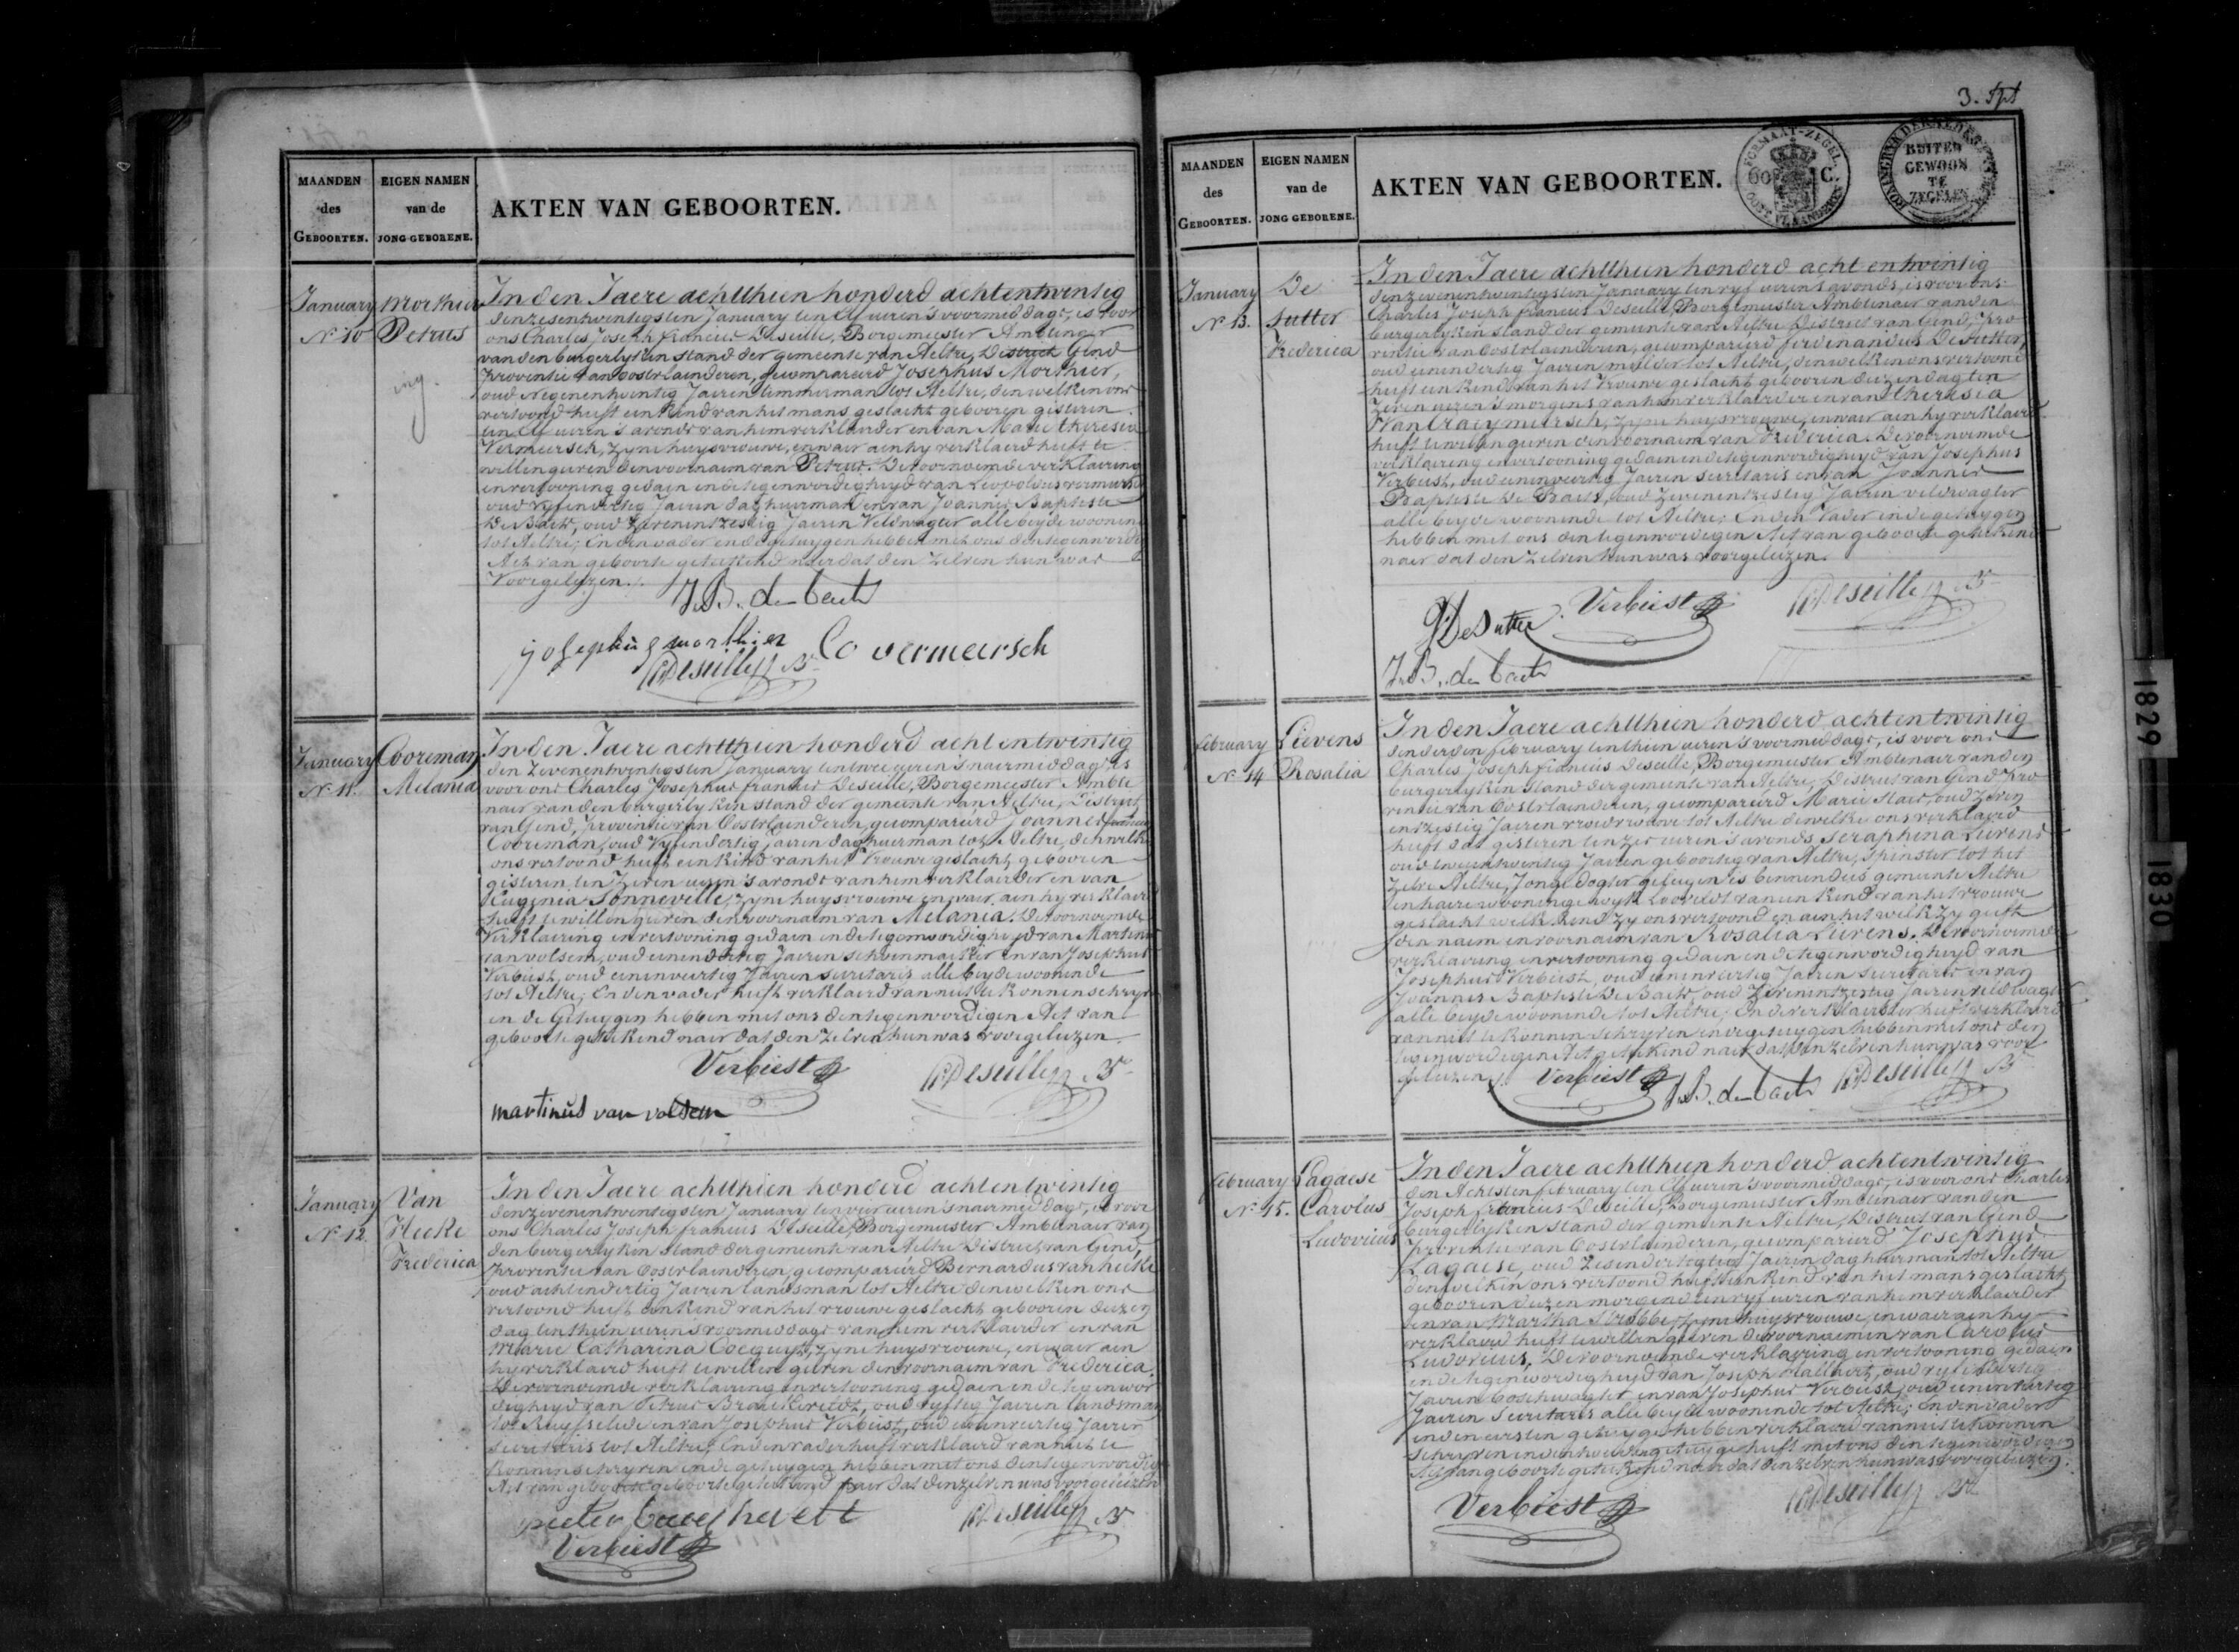 MAANDEN
des
GEBOORTEN.
EIGEN NAMEN
van de
JONG GEBORENE.
AKTEN VAN GEBOORTEN.
January
N. 10
Morthier
Petrus
In den Jaere achtthien honderd achtentwintig
den zesentwintigsten January ten elf ueren 's voormiddags, is voor
ons Charles Joseph francies Deseille, Borgemeester Ambtenaer
van den burgerlyken stand der gemeente van Aeltre, District Gend
Provintie van oostvlaenderen, gecompareerd Josephus Morthier,
oud Negenentwintig Jaeren timmerman tot Aeltre, den welken ons
vertoond heeft een kind van het mans geslacht gebooren gisteren
ten elf ueren 's avonds van hem verklaerder en van Marie theresia
Vermeersch, zyne huysvrouwe, en waer aen hy verklaerd heeft te
willen geven den voornaem van Petrus. De voornoemde verklaering
en vertooning gedaen in de tegenwoordigheyd van Leopoldus vermeersch
oud vyfendertig Jaeren daghuerman en van Joannes Baptiste
De Baets, oud Zevenentzestig Jaeren Veldwagter alle beyde woonende
tot Aeltre; En den vader en de getuygen hebben met ons den tegenwordigen
Act van geboorte geteekend naer dat den zelven hun was
Voorgelezen.
J.B. de baets
josephus morthier
Lo vermeersch
CDeseille Br
January
N. 11.
Cooreman
Melania
In den Jaere achtthien honderd achtentwintig
den Zevenentwintigsten January ten twee ueren 's naermiddags is
voor ons Charles Josephus francies Deseille, Borgemeester Ambte
naer van den burgerlyken stand der gemeente van Aeltre, District
van Gend, provintie van Oostvlaenderen, gecompareerd Joannes
Cooreman, oud Vyfendertig jaeren daghuerman tot Aeltre, den welken
ons vertoond heeft een kind van het Vrouwe geslacht, gebooren
gisteren ten zeven ueren 's avonds van hem verklaerder en van
Eugenia Sonneville, zyne huysvrouwe en waer aen hy verklaerd
heeft te willen geven den voornaem van Melania. De voornoemde
Verklaering en vertooning gedaen in de tegenwoordigheyd van Martinus
van volsem, oud eenendertig Jaeren schoenmaeker en van Josephus
Verbiest, oud eenenveertig Jaeren secretaris alle beyde woonende
tot Aeltre; En den vader heeft verklaerd van niet te konnen schryven
en de Getuygen hebben met ons den tegenwordigen Act van
geboorte geteekend naer dat den zelven hun was voorgelezen.
Verbiest
CDeseille Br
martinus van volsem
January
N. 12.
Van
Hecke
Frederica
In den Jaere achtthien honderd achtentwintig
den zevenentwintigsten January ten vier ueren 's naermiddags, is voor
ons Charles Joseph francies Deseille, Borgemeester Ambtenaer van
den burgerlyken stand der gemeente van Aeltre District van Gend,
provintie van Oostvlaenderen, gecompareerd Bernardus van hecke
oud achtendertig Jaeren landsman tot Aeltre den welken ons
vertoond heeft een kind van het vrouwe geslacht gebooren deezen
dag ten thien ueren 's voormiddags van hem verklaerder en van
Marie Catharina Cocquyt, zyne huysvrouwe, en waer aen
hy verklaerd heeft te willen geven den voornaem van Frederica.
De voornoemde verklaering en vertooning gedaen in de tegenwor
digheyd van Petrus, oud vyftig Jaeren landsman
tot Ruysselede en van Josephus Verbiest, oud eenenveertig Jaeren
secretaris tot Aeltre; En den vader heeft verklaerd van niet te
konnen schryven en de getuygen hebben met ons den tegenwordigen
Act van geboorte geteekend naer dat den zelven was voorgelezen
pieter
CDeseille Br
Verbiest
3.
MAANDEN
des
GEBOORTEN.
EIGEN NAMEN
van de
JONG GEBORENE.
AKTEN VAN GEBOORTEN.
FORMAAT-ZEGEL.
60 C.
OOST VLAANDEREN
KONINGRYK DER NEDERLANDEN
BUITEN
GEWOON
TE
ZEGELEN
January
N. 13.
De
sutter
Frederica
In den Jaere achtthien honderd acht entwintig
den zevenentwintigsten January ten vyf ueren 's avonds, is voor ons
Charles Joseph francies Deseille, Borgemeester Ambtenaer van den
burgerlyken stand der gemeente van Aeltre District van Gend, Pro
vintie van Oostvlaenderen, gecompareerd ferdenandus De sutter,
oud eenendertig Jaeren mulder tot Aeltre, den welken ons vertoond
heeft een kind van het Vrouwe geslacht gebooren deezen dag ten
Zeven ueren 's morgens van hem verklaerder en van theresia
Van Craeymeersch, zyne huysvrouwe, en waer aen hy verklaerd
heeft te willen geven den voornaem van Frederica. De voornoemde
verklaering en vertooning gedaen in de tegenwordigheyd van Josephus
Verbiest, oud eenenveertig Jaeren secretaris en van Joannes
Baptiste De Baets, oud Zevenentzestig Jaeren veldwagter
alle beyde woonende tot Aeltre; En den Vader en de getuygen
hebben met ons den tegenwoordigen Act van geboorte geteekend
naer dat den zelven hun was voorgelezen.
DeSutter
Verbiest
CDeseille Br
J.B. de baets
february
N. 14
Lievens
Rosalia
In den Jaere achtthien honderd achtentwintig
den derden february ten thien ueren 's voormiddags, is voor ons
Charles Joseph francies Deseille, Borgemeester Ambtenaer van den
burgerlyken stand der gemeente van Aeltre, District van Gend Pro
vintie van Oostvlaenderen, gecompareerd Marie Staes, oud Zeven
entzestig Jaeren vroedvrouwe tot Aeltre dewelke ons verklaerd
heeft dat gisteren ten zes ueren 's avonds Seraphina Lievens
oud tweentwintig Jaeren geboortig van Aeltre, spinster tot het
zelve Aeltre, Jonge dogter gelegen is binnen dees gemeente Aeltre
in haere wooninge wyk Loovelot van een kind van het vrouwe
geslacht welk kind zy ons vertoond en aen het welk zy geeft
den naem en voornaem van Rosalia Lievens. De voornoemde
verklaering en vertooning gedaen in de tegenwordigheyd van
Josephus Verbiest, oud eenenveertig Jaeren secretaris en van
Joannes Baptiste De Baets, oud Zevenentzestig Jaeren veldwagter
alle beyde woonende tot Aeltre; En de verklaerster heeft verklaerd
van niet te konnen schryven en de getuygen hebben met ons den
tegenwordigen Act geteekend naer dat den zelven hun was voor
gelezen.
Verbiest
J.B. de baets
CDeseille Br
february
N. 15.
Lagaese
Carolus
Ludovicus
In den Jaere achtthien honderd achtentwintig
den Achtsten february ten elf ueren 's voormiddags, is voor ons Charles
Joseph francies Deseille, Borgemeester Ambtenaer van den
burgerlyken stand der gemeente Aeltre, District van Gend
Provintie van Oostvlaenderen, gecompareerd Josephus
Lagaese, oud Zesendertig Jaeren daghuerman tot Aeltre
den welken ons vertoond heeft een kind van het mans geslacht,
gebooren deezen morgend ten vyf ueren van hem verklaerder
en van Martha Strobbe, zyne huysvrouwe, en waer aen hy
verklaerd heeft te willen geven de voornaemen van Carolus
Ludovicus. De voornoemde verklaering en vertooning gedaen
in de tegenwordigheyd van Joseph, oud vyfendertig
Jaeren boschwagter en van Josephus Verbiest, oud eenenveertig
Jaeren Secretaris alle beyde woonende tot Aeltre; En den vader
en den eersten getuyge hebben verklaerd van niet te konnen
schryven en den tweeden getuyge heeft met ons den tegenwordigen
Act van geboorte geteekend naer dat den zelven hun was voorgelezen.
Verbiest
CDeseille Br
1829
1830